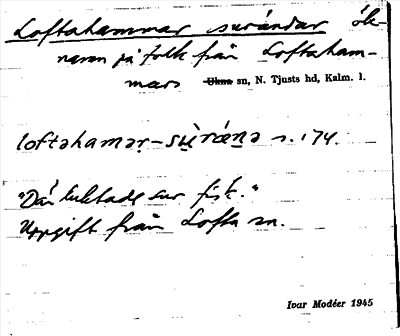 Loftahammar surändar ök-
namn på folk från Loftaham-
mars Ukna sn, N. Tjusts hd, Kalm. l.
loftəhamər-sʉ̀rɑ́nə s. 174.
"Där luktade sur fisk."
Uppgift från Lofta sn.
Ivar Modéer 1945